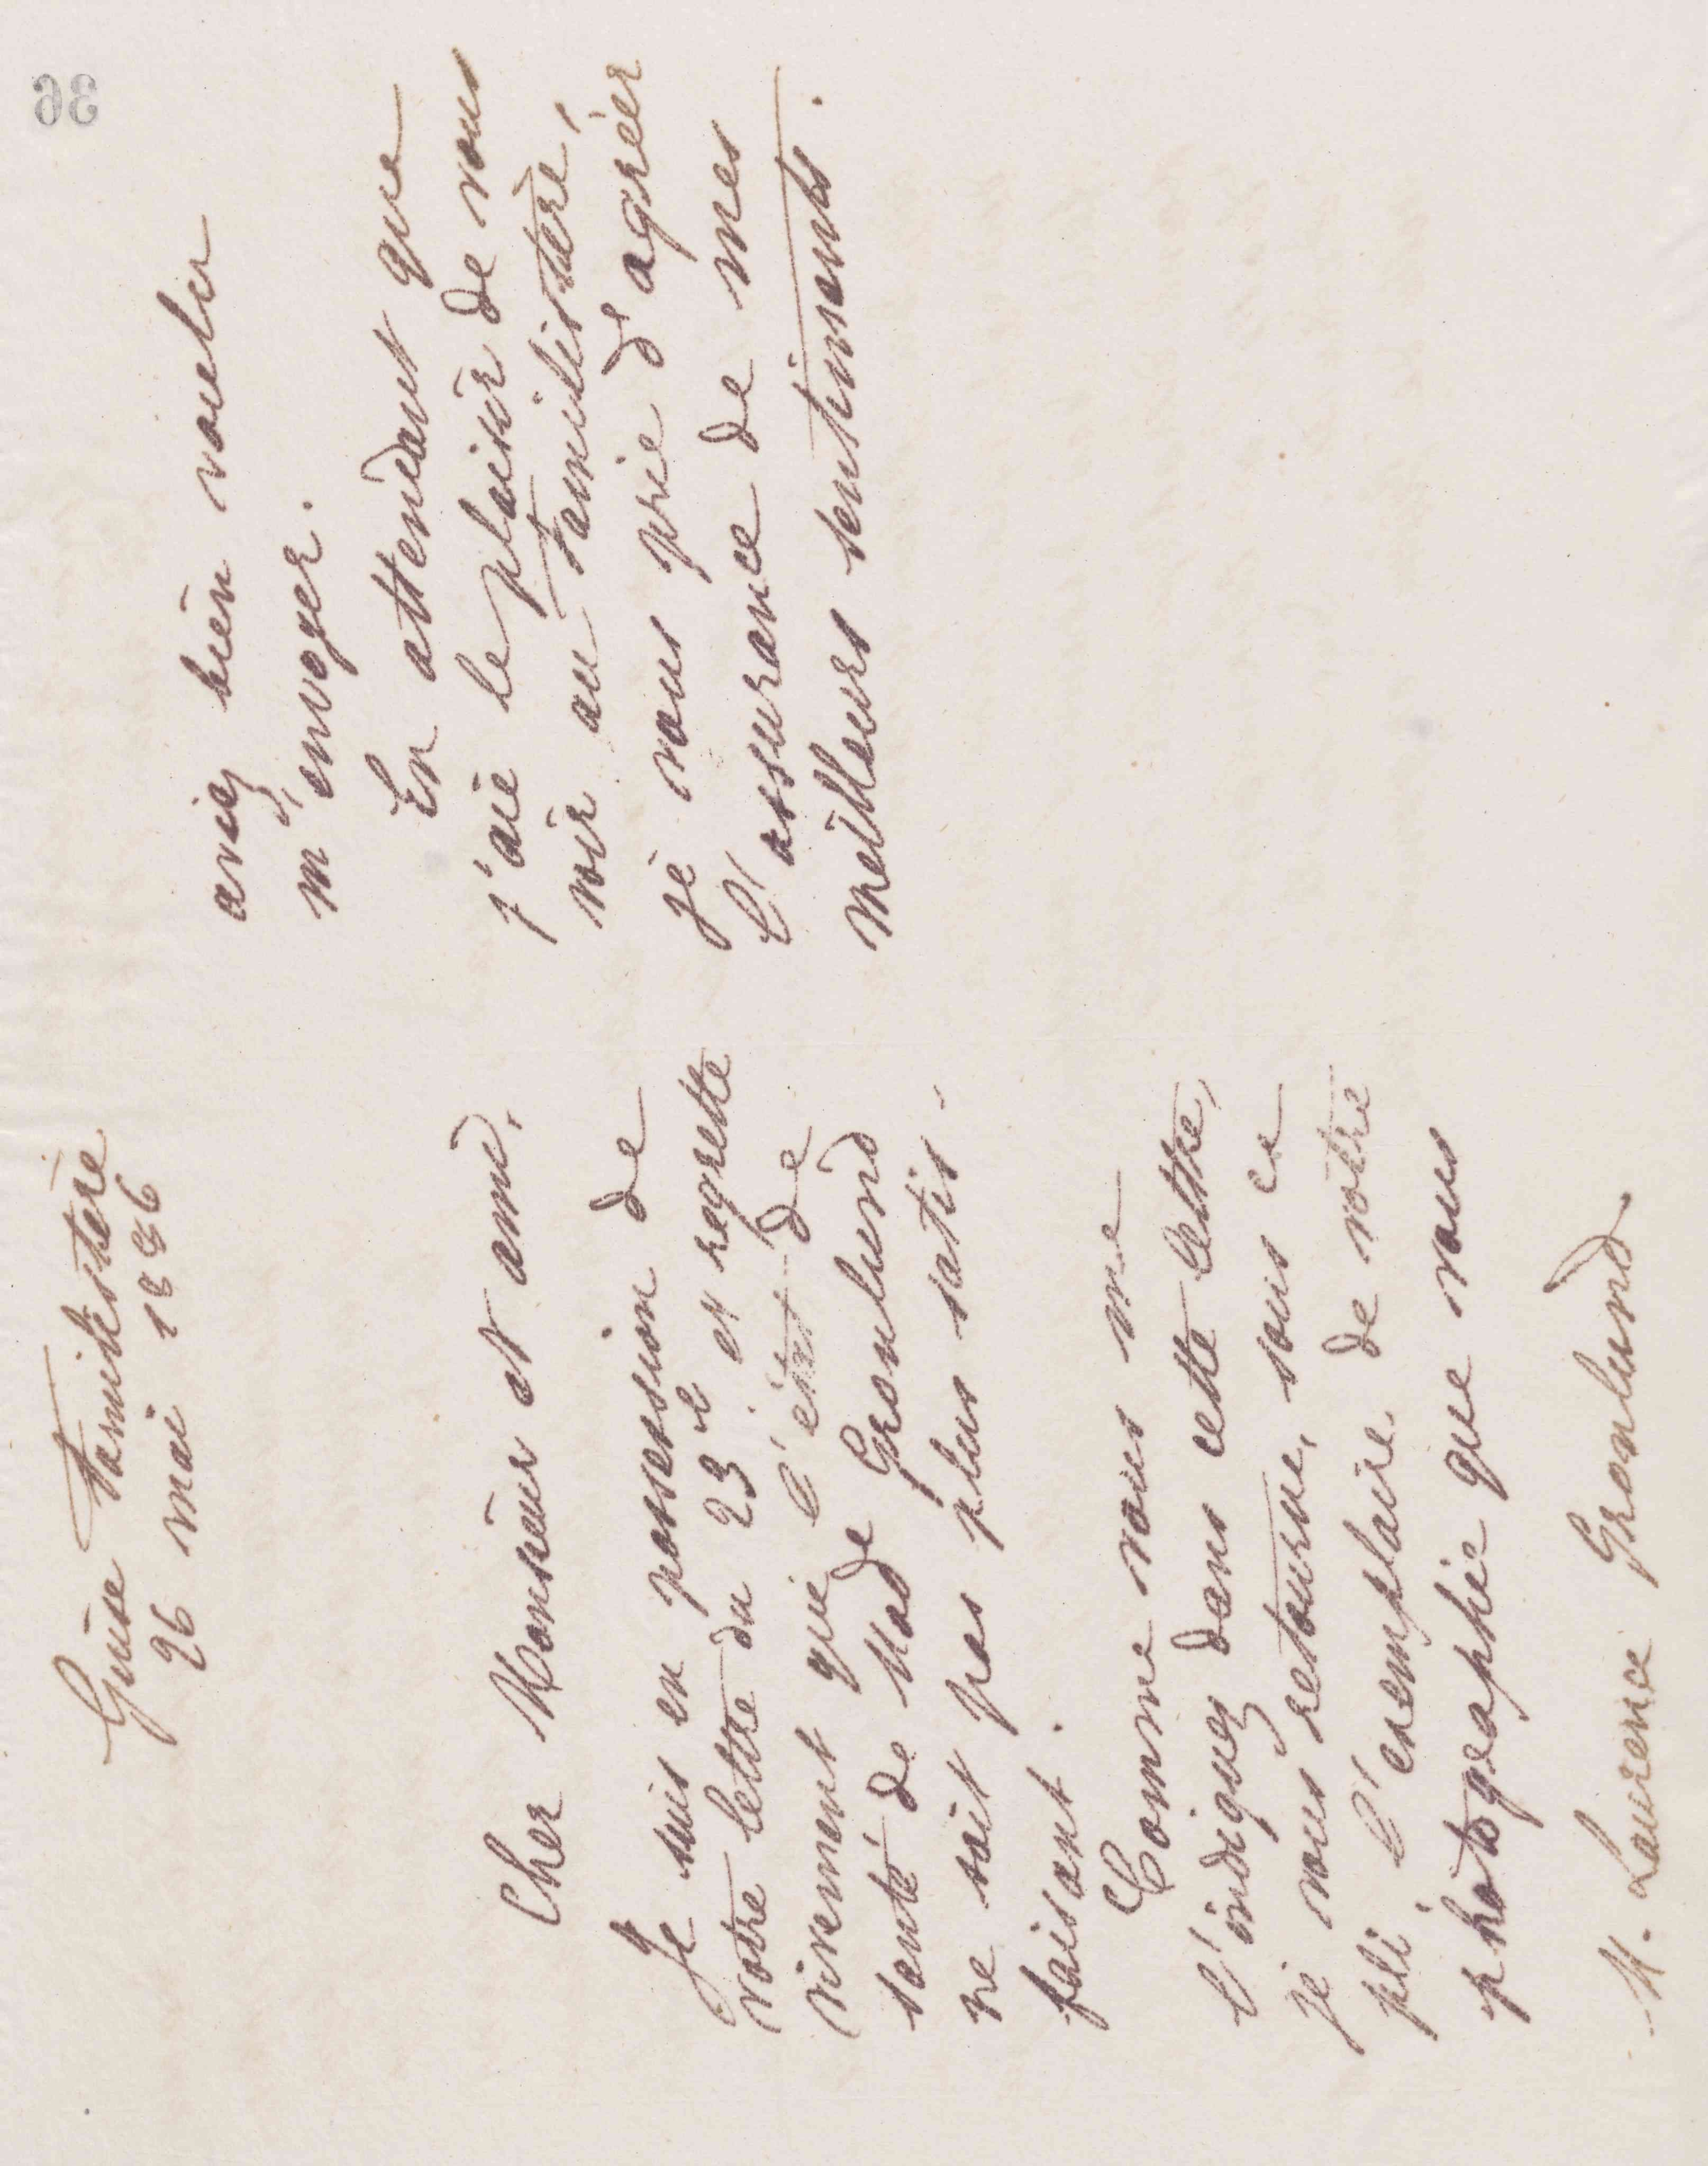 Guise Familistère
26 mai 1886
Cher Monsieur et ami,
Je suis en possession de
votre lettre du 23 et et regrette
vivement que l'état de
santé de Made Gronlund
ne soit pas plus satis-
faisant.
Comme vous me
l'indiquez dans cette lettre,
je vous retourne, sous ce
pli l'exemplaire de votre
photographie que vous
M. Laurence Gronlund
36
aviez bien voulu
m'envoyer.
En attendant que
j'aie le plaisir de vous
voir au familistère,
je vous prie d'agréer
l'assurance de mes
meilleurs sentiments.